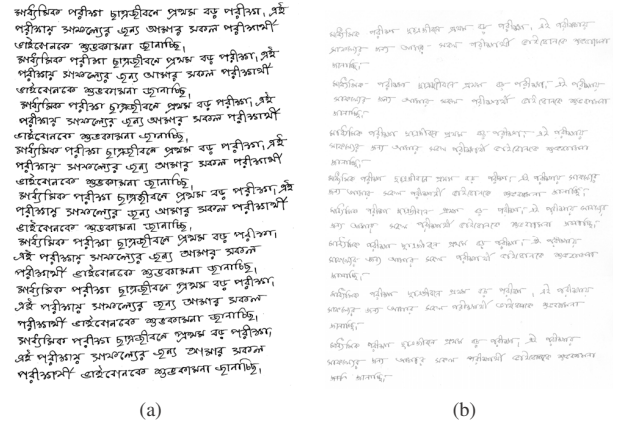 মাধ্যমিক পরীক্ষা ছাত্রজীবনে প্রথম বড় পরীক্ষা, এই
পরীক্ষায় সাফল্যের জন্য আমার সকল পরীক্ষার্থী
ভাইবোনকে শুভকামনা জানাচ্ছি,
মাধ্যমিক পরীক্ষা ছাত্রজীবনে প্রথম বড় পরীক্ষা, এই
পরীক্ষায় সাফল্যের জন্য আমার সকল পরীক্ষার্থী
ভাইবোনকে শুভকামনা জানাচ্ছি,
মাধ্যমিক পরীক্ষা ছাত্রজীবনে প্রথম বড় পরীক্ষা, এই
পরীক্ষায় সাফল্যের জন্য আমার সকল পরীক্ষার্থী
ভাইবোনকে শুভকামনা জানাচ্ছি,
মাধ্যমিক পরীক্ষা ছাত্রজীবনে প্রথম বড় পরীক্ষা, এই
পরীক্ষায় সাফল্যের জন্য আমার সকল পরীক্ষার্থী
ভাইবোনকে শুভকামনা জানাচ্ছি,
মাধ্যমিক পরীক্ষা ছাত্রজীবনে প্রথম বড় পরীক্ষা, এই
পরীক্ষায় সাফল্যের জন্য আমার সকল পরীক্ষার্থী
ভাইবোনকে শুভকামনা জানাচ্ছি,
মাধ্যমিক পরীক্ষা ছাত্রজীবনে প্রথম বড় পরীক্ষা,
এই পরীক্ষায় সাফল্যের জন্য আমার সকল
পরীক্ষার্থী ভাইবোনকে শুভকামনা জানাচ্ছি,
মাধ্যমিক পরীক্ষা ছাত্রজীবনে প্রথম বড় পরীক্ষা,
এই পরীক্ষায় সাফল্যের জন্য আমার সকল
পরীক্ষার্থী ভাইবোনকে শুভকামনা জানাচ্ছি,
মাধ্যমিক পরীক্ষা ছাত্রজীবনে প্রথম বড় পরীক্ষা,
এই পরীক্ষায় সাফল্যের জন্য আমার সকল
পরীক্ষার্থী ভাইবোনকে শুভকামনা জানাচ্ছি,
(a)
মাধ্যমিক পরীক্ষা ছাত্রজীবনে প্রথম বড় পরীক্ষা, এই পরীক্ষায়
সাফল্যের জন্য আমার সকল পরীক্ষার্থী ভাইবোনকে শুভকামনা
জানাচ্ছি,
মাধ্যমিক পরীক্ষা ছাত্রজীবনে প্রথম বড় পরীক্ষা, এই পরীক্ষায়
সাফল্যের জন্য আমার সকল পরীক্ষার্থী ভাইবোনকে শুভকামনা
জানাচ্ছি,
মাধ্যমিক পরীক্ষা ছাত্রজীবনে প্রথম বড় পরীক্ষা, এই পরীক্ষায়
সাফল্যের জন্য আমার সকল পরীক্ষার্থী ভাইবোনকে শুভকামনা
জানাচ্ছি,
মাধ্যমিক পরীক্ষা ছাত্রজীবনে প্রথম বড় পরীক্ষা, এই পরীক্ষায় সাফল্যের
জন্য আমার সকল পরীক্ষার্থী ভাইবোনকে শুভকামনা জানাচ্ছি,
মাধ্যমিক পরীক্ষা ছাত্রজীবনে প্রথম বড় পরীক্ষা, এই পরীক্ষায় সাফল্যের
জন্য আমার সকল পরীক্ষার্থী ভাইবোনকে শুভকামনা জানাচ্ছি,
মাধ্যমিক পরীক্ষা ছাত্রজীবনে প্রথম বড় পরীক্ষা, এই পরীক্ষায়
সাফল্যের জন্য আমার সকল পরীক্ষার্থী ভাইবোনকে শুভকামনা
জানাচ্ছি,
মাধ্যমিক পরীক্ষা ছাত্রজীবনে প্রথম বড় পরীক্ষা, এই পরীক্ষায়
সাফল্যের জন্য আমার সকল পরীক্ষার্থী ভাইবোনকে শুভকামনা
জানাচ্ছি,
মাধ্যমিক পরীক্ষা ছাত্রজীবনে প্রথম বড় পরীক্ষা, এই পরীক্ষায়
সাফল্যের জন্য আমার সকল পরীক্ষার্থী ভাইবোনকে শুভকামনা
জানাচ্ছি,
(b)